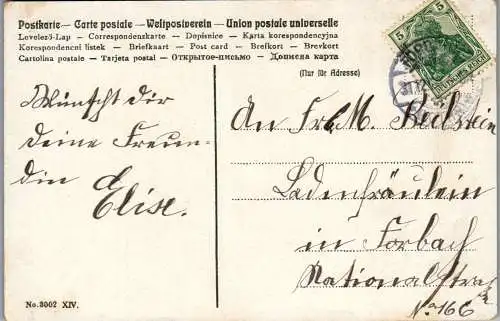 Postkarte – Carte postale – Weltpostverein – Union postale universelle
Levelező-Lap – Correspondenskarte – Dopisnice – Karta korespondencyjna
Korespondenční lístek – Briefkaart – Post card – Brefkort – Brevkort
Cartolina postale – Tarjeta postal – Открытое письмо – Дописна карта
(Nur für Adresse)
5 5
DEUTSCHES REICH
Wünscht dir
deine Freun-
din Elise.
An Frl. M. Beilstein
Ladenfräulein
in Forbach
Nationalstraß
No 166
No. 3002 XIV.